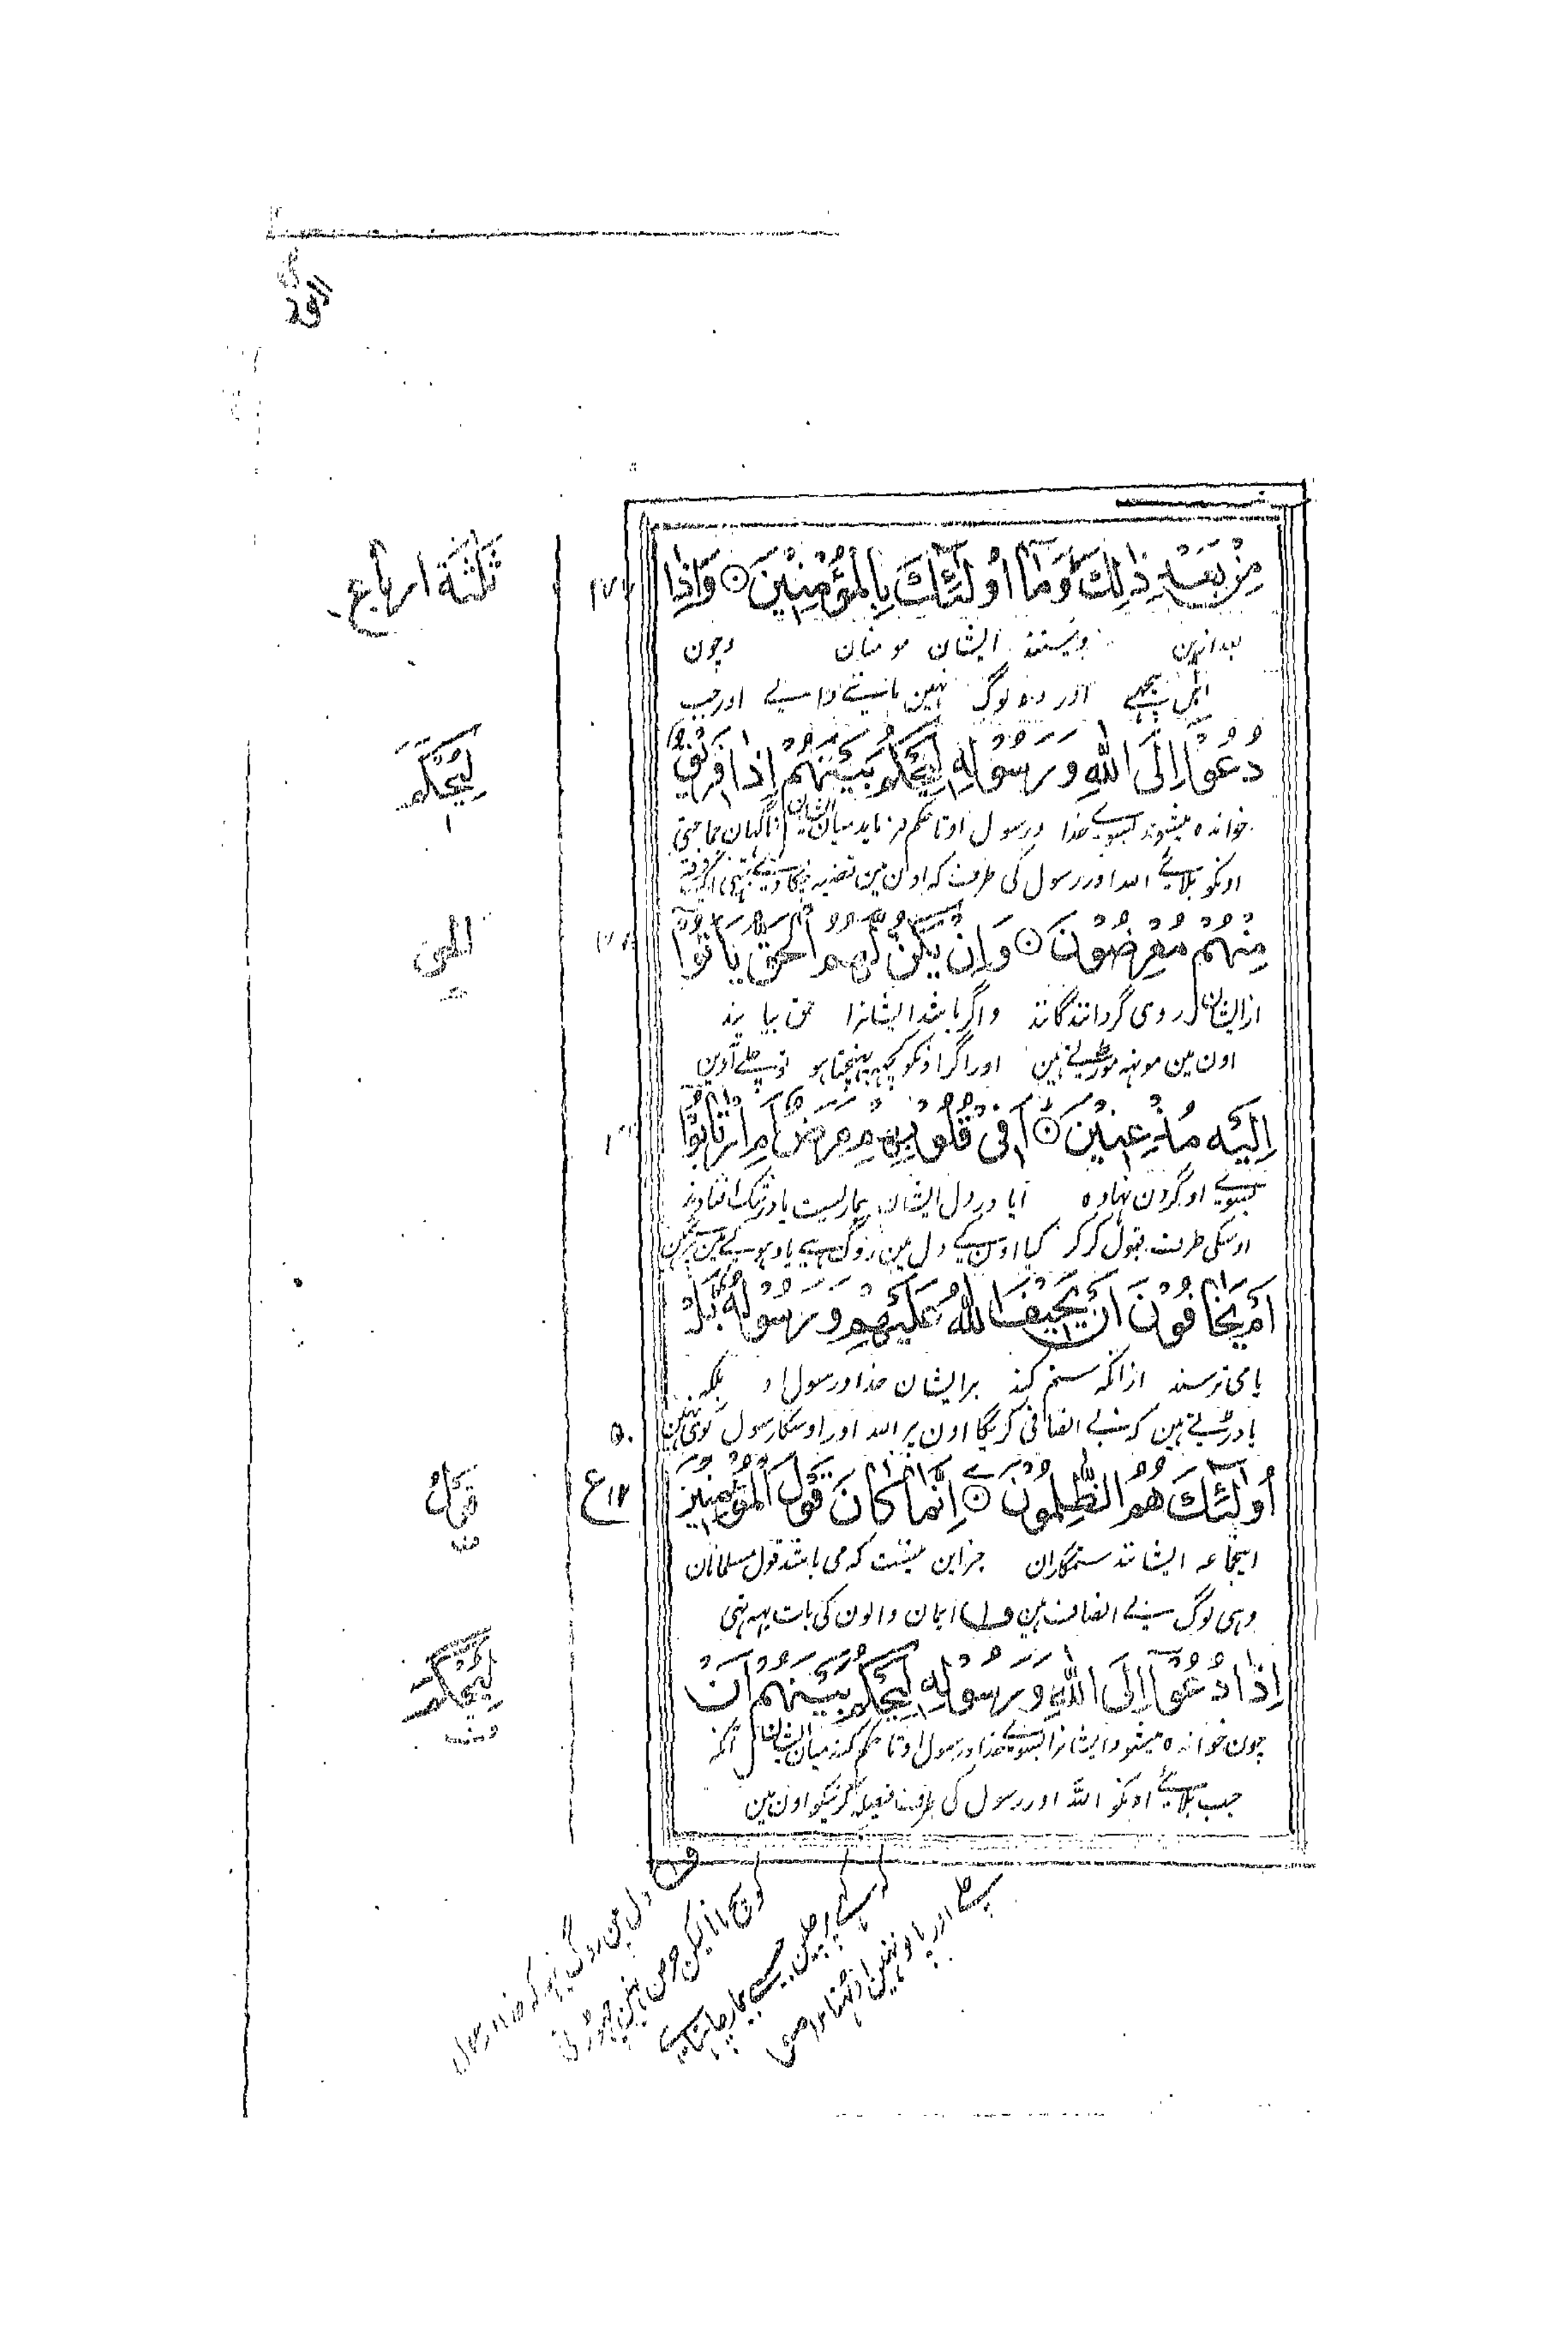 مِنْ بَعْدِ ذٰلِكَ وَمَآ اُولٰٓئِكَ بِالْمُؤْمِنِيْنَ ۝ وَاِذَا
بعد ازین ونیستند ایشان مومنان وچون
اس پیچھے اور وہ لوگ نہین ماننے والے اورجب
دُعُوْٓا اِلَى اللّٰهِ وَرَسُوْلِهٖ لِيَحْكُمَ بَيْنَهُمْ اِذَا فَرِيْقٌ
خوانده میشوند بسوے خدا ورسول او تا حکم فرماید میان ایشان ناگهان جماعتی
اونکو بلائے الله اور رسول کی طرف که اون مین قضیه چکاوے
مِنْهُمْ مُّعْرِضُوْنَ ۝ وَاِنْ يَّكُنْ لَّهُمُ الْحَقُّ يَاْتُوْٓا
از ایشان روی گردانندگانند واگر باشد ایشانرا حق بیایند
اون مین مونهه موڑتے ہین اوراگر اونکو کچهه پہنچتا ہو تو چلے آوین
اِلَيْهِ مُذْعِنِيْنَ ۝ اَفِيْ قُلُوْبِهِمْ مَّرَضٌ اَمِ ارْتَابُوْٓا
بسوے او گردن نهاده آیا در دل ایشان بیماریست یا در شک افتادند
اوسکی طرف قبول کر کر کیا اون کے دل مین روگ ہے یا دہوکے مین پڑے ہین
اَمْ يَخَافُوْنَ اَنْ يَّحِيْفَ اللّٰهُ عَلَيْهِمْ وَرَسُوْلُهٗ بَلْ
یا می ترسند از انکه ستم کند برایشان خدا ورسول او بلکه
یا ڈرتے ہین که بے انصافی کریگا اون پر الله اور اوسکا رسول کوئی نہین
اُولٰٓئِكَ هُمُ الظّٰلِمُوْنَ ۝ اِنَّمَا كَانَ قَوْلَ الْمُؤْمِنِيْنَ
اینجماعه ایشانند ستمگاران جزاین نیست که می باشد قول مسلمانان
وہی لوگ بے انصاف ہین ف ایمان والون کی بات یہه تہی
اِذَا دُعُوْٓا اِلَى اللّٰهِ وَرَسُوْلِهٖ لِيَحْكُمَ بَيْنَهُمْ اَنْ
چون خوانده میشود ایشانرا بسوے خدا ورسول او تا حکم کند میان ایشان آنکه
جب بلائے اونکو الله اور رسول کی طرف فیصله کرنیکو اون مین
ثلثة ارباع
لِيَحْكُمَ
قَوْلُ
لِيَحْكُمَ
۵۰
ع ۱۲
ف
دل مین روگ یہه که خدا رسول
کو سچ مانا لیکن حرص نہین چہوڑتی
که کہے پر چلین جیسے بیمار چاہتا ہے
چلے اور پانو نہین اوٹهتا